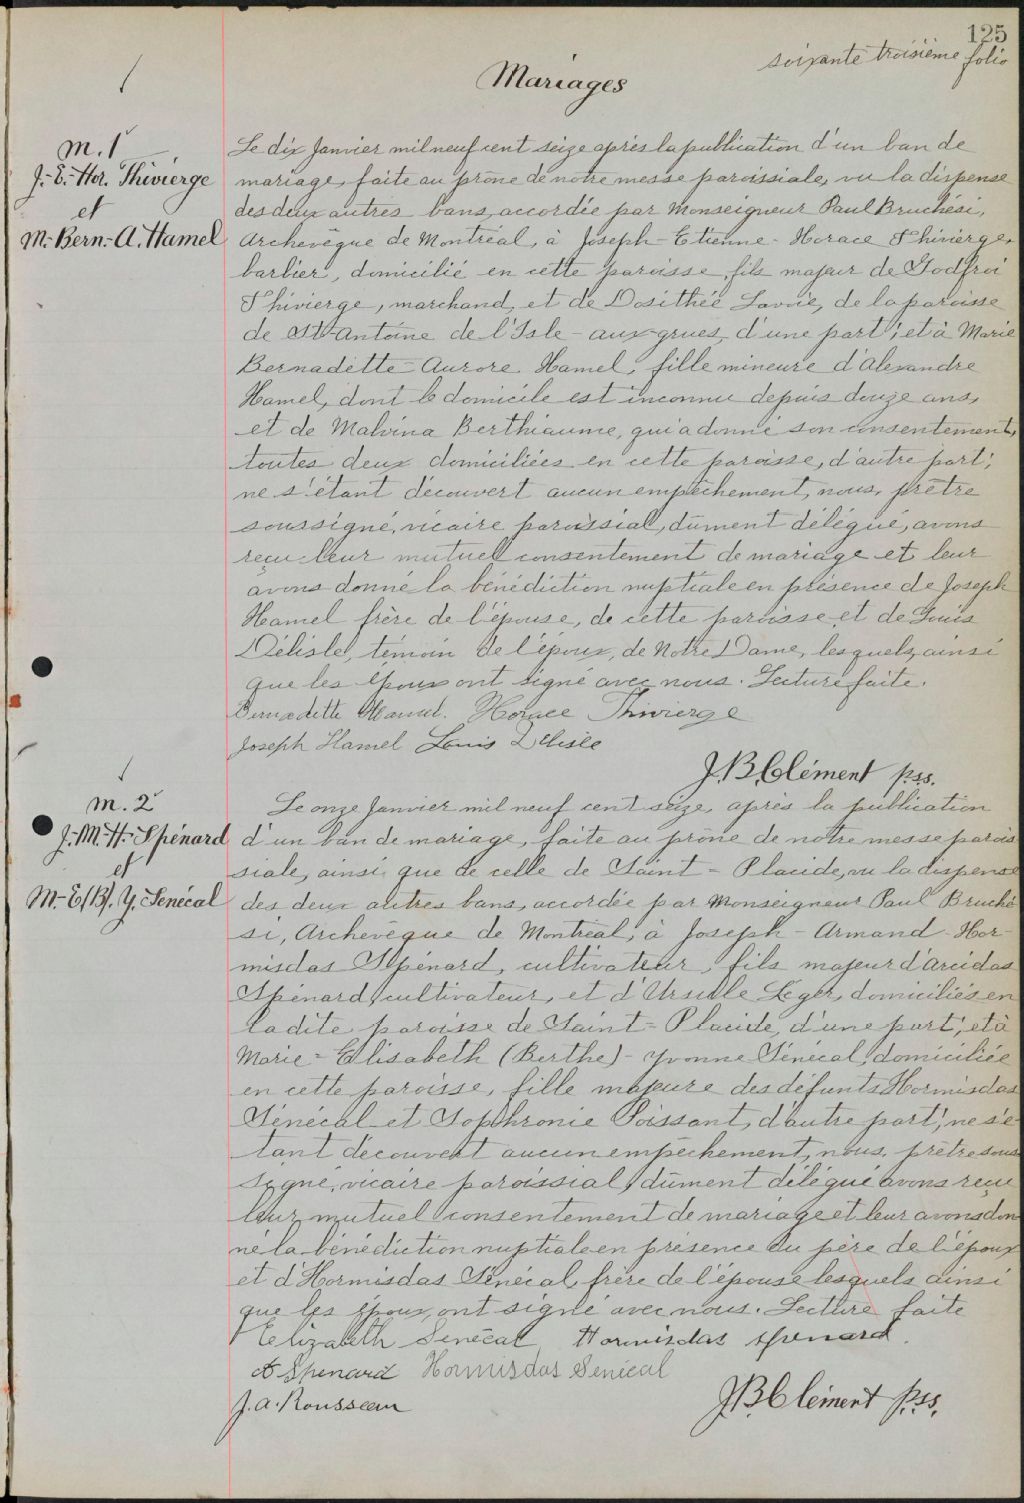 125
soixante troisième folio
Mariages
m. 1
J.-E.-Hor. Thivierge
et
M.-Bern.-A. Hamel
Le dix Janvier mil neuf cent seize après la publication d'un ban de
mariage, faite au prône de notre messe paroissiale, vu la dispense
des deux autres bans, accordée par Monseigneur Paul Bruchési,
Archevêque de Montréal, à Joseph-Etienne-Horace Thivierge,
barbier, domicilié en cette paroisse, fils majeur de Godfroi
Thivierge, marchand, et de Dosithée Lavoie, de la paroisse
de St-Antoine de l'Isle-aux-grues, d'une part; et à Marie
Bernadette-Aurore Hamel, fille mineure d'Alexandre
Hamel, dont le domicile est inconnu depuis douze ans,
et de Malvina Berthiaume, qui a donné son consentement,
toutes deux domiciliées en cette paroisse, d'autre part;
ne s'étant découvert aucun empêchement, nous, prêtre
soussigné, vicaire paroissial, dûment délégué, avons
reçu leur mutuel consentement de mariage et leur
avons donné la bénédiction nuptiale en présence de Joseph
Hamel frère de l'épouse, de cette paroisse et de Louis
Délisle, témoin de l'époux, de Notre Dame, lesquels, ainsi
que les époux ont signé avec nous. Lecture faite.
Bernadette Hamel. Horace Thivierge
Joseph Hamel Louis Delisle
J.B. Clément p.s.s.
m. 2
J.-M.-H.-Spénard
et
M.-E.(B). Y. Senécal
Le onze Janvier mil neuf cent seize, après la publication
d'un ban de mariage, faite au prône de notre messe parois
siale, ainsi que de celle de Saint-Placide, vu la dispense
des deux autres bans, accordée par Monseigneur Paul Bruché
si, Archevêque de Montréal, à Joseph-Armand-Hor-
misdas Spénard, cultivateur, fils majeur d'Arcidas
Spénard, cultivateur, et d'Ursule Léger, domiciliés en
la dite paroisse de Saint-Placide, d'une part; et à
Marie-Elisabeth (Berthe)-Yvonne Sénécal, domiciliée
en cette paroisse, fille majeure des défunts Hormisdas
Sénécal et Sophronie Poissant, d'autre part; ne s'é-
tant découvert aucun empêchement, nous, prêtre sous
signé, vicaire paroissial, dûment délégué avons reçu
leur mutuel consentement de mariage et leur avons don
né la bénédiction nuptiale en présence du père de l'époux
et d'Hormisdas Sénécal, frère de l'épouse lesquels ainsi
que les époux, ont signé avec nous. Lecture faite
Elizabeth Senécal Hormisdas Spenard.
A Spenard Hormisdas Senécal
J.A. Rousseau
J.B. Clément p.s.s.